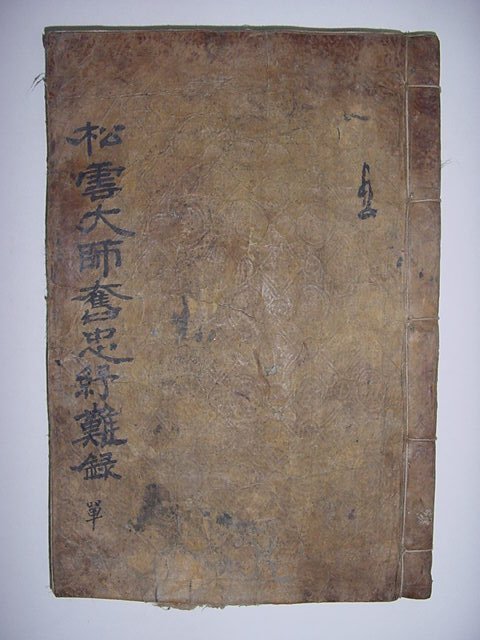 松雲大師奮忠紓難錄 單